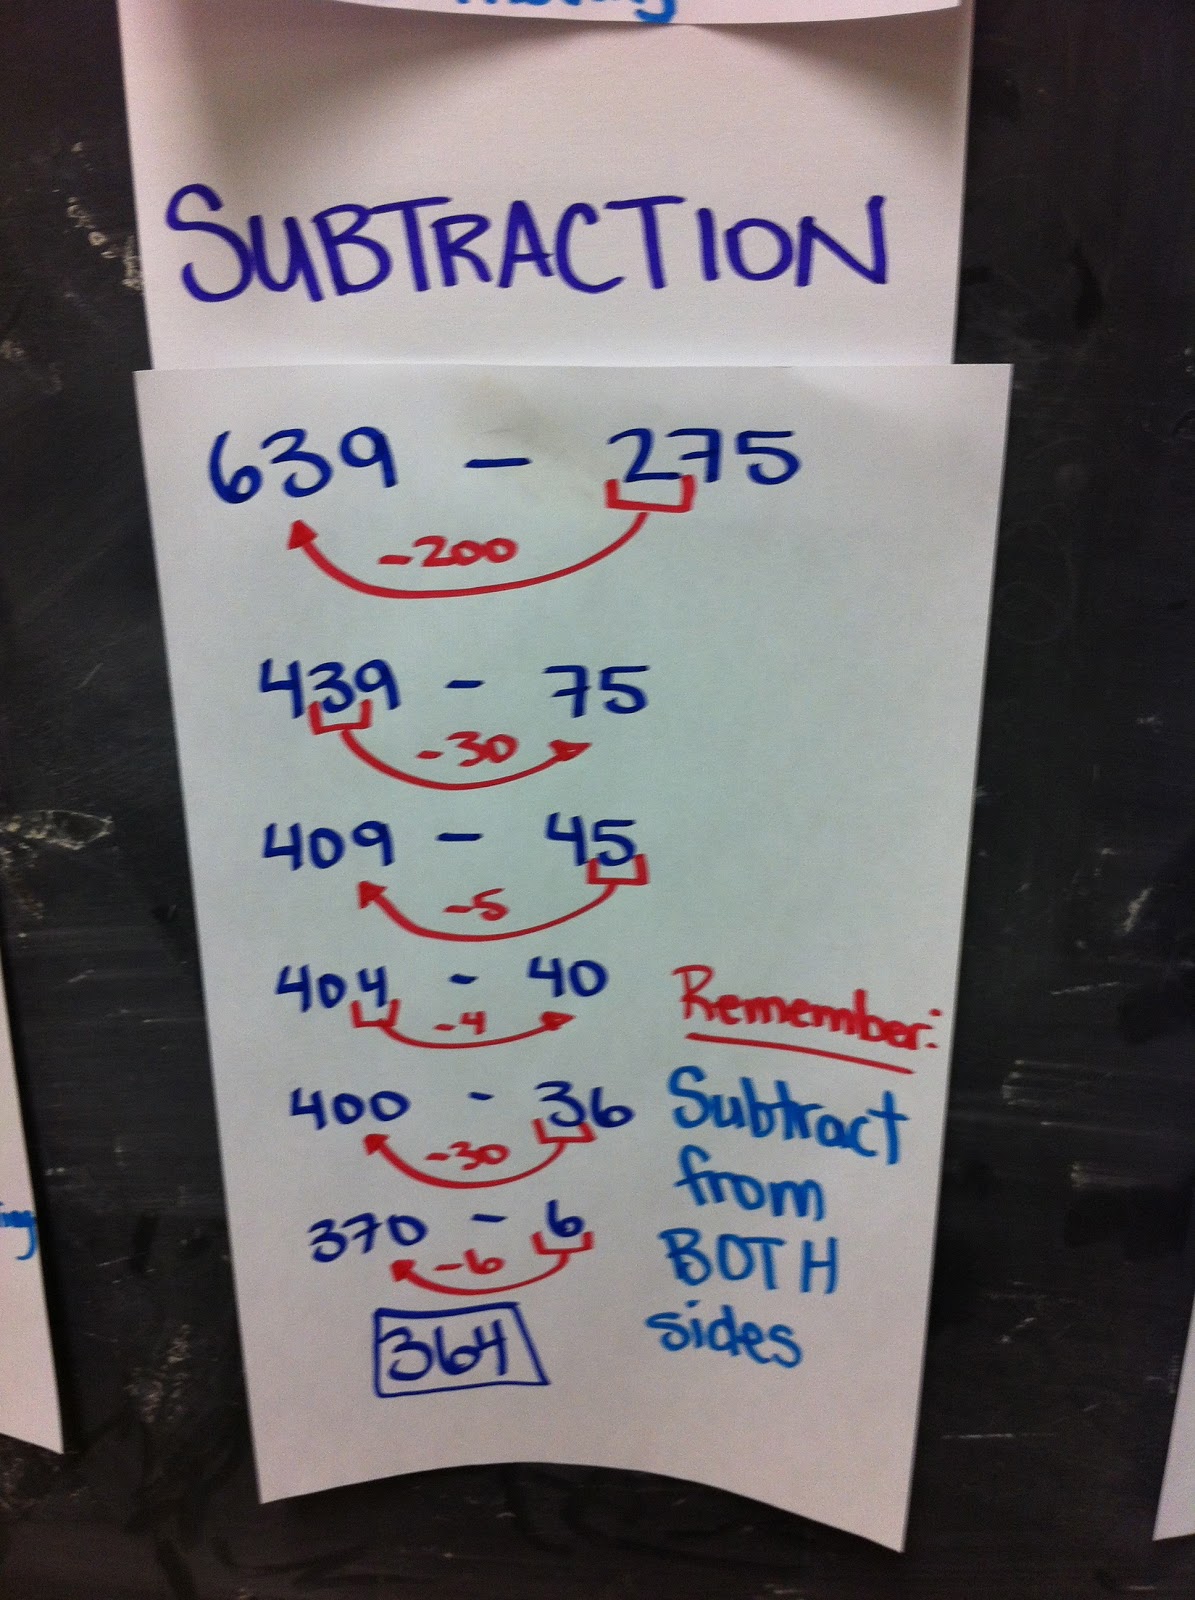 SUBTRACTION
639 - 275
-200
439 - 75
-30
409 - 45
-5
404 - 40
-4
400 - 36
-30
370 - 6
-6
364
Remember:
Subtract
from
BOTH
sides